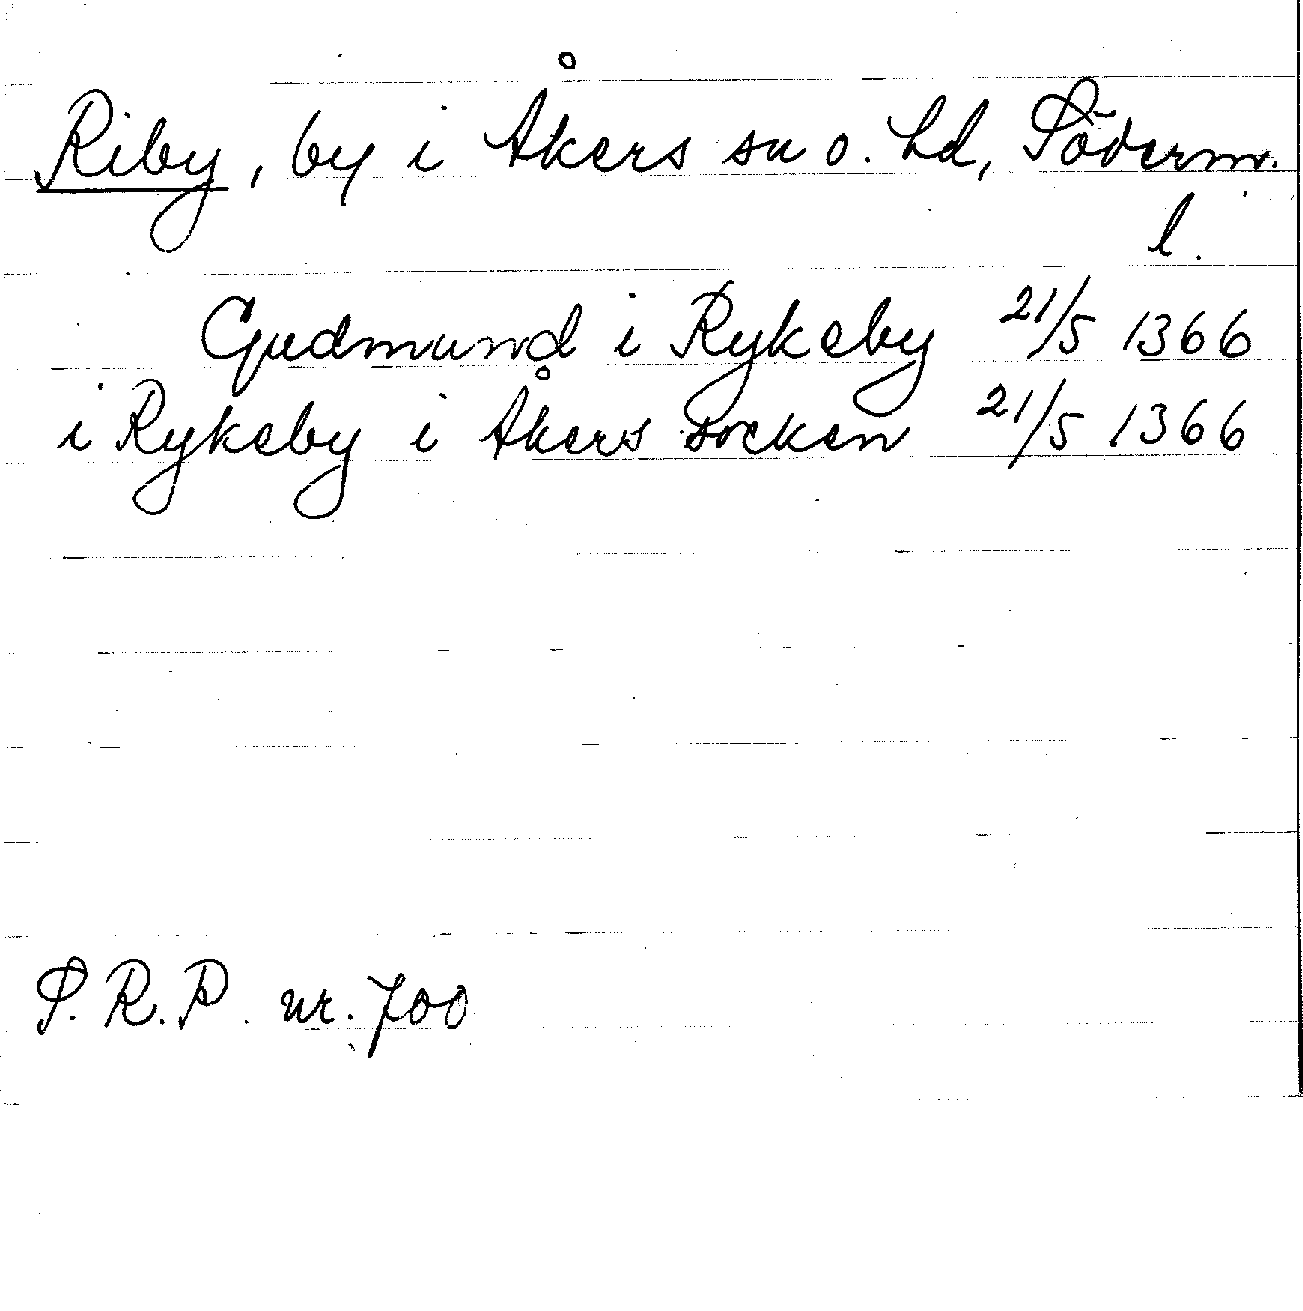 Riby, by i Åkers sn o. hd, Söderm.
l.
Gudmund i Rykeby 21/5 1366
i Rykeby i Åkers socken 21/5 1366
S.R.P. nr. 700